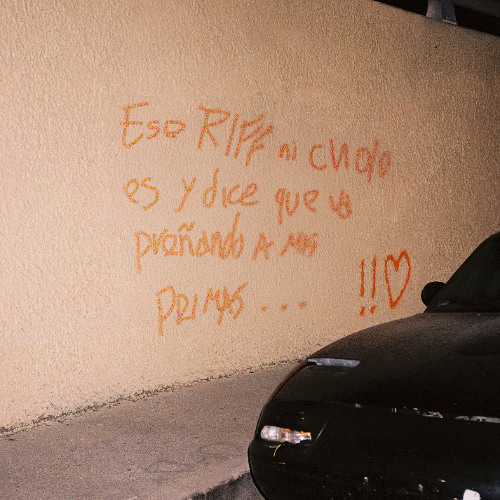 Ese RIFF ni cholo
es y dice que va
preñando A MIS
PRIMAS... !!♡